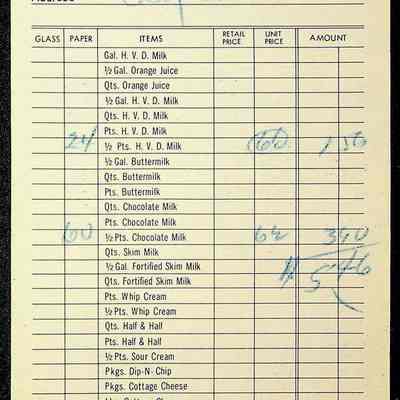 GLASS PAPER ITEMS RETAIL PRICE UNIT PRICE AMOUNT
Gal. H. V. D. Milk
½ Gal. Orange Juice
Qts. Orange Juice
½ Gal. H. V. D. Milk
Qts. H. V. D. Milk
Pts. H. V. D. Milk
24 ½ Pts. H. V. D. Milk 1 56
½ Gal. Buttermilk
Qts. Buttermilk
Pts. Buttermilk
Qts. Chocolate Milk
Pts. Chocolate Milk
60 ½ Pts. Chocolate Milk 6½ 3 90
Qts. Skim Milk
½ Gal. Fortified Skim Milk 5 46
Qts. Fortified Skim Milk
Pts. Whip Cream
½ Pts. Whip Cream
Qts. Half & Half
Pts. Half & Half
½ Pts. Sour Cream
Pkgs. Dip-N-Chip
Pkgs. Cottage Cheese